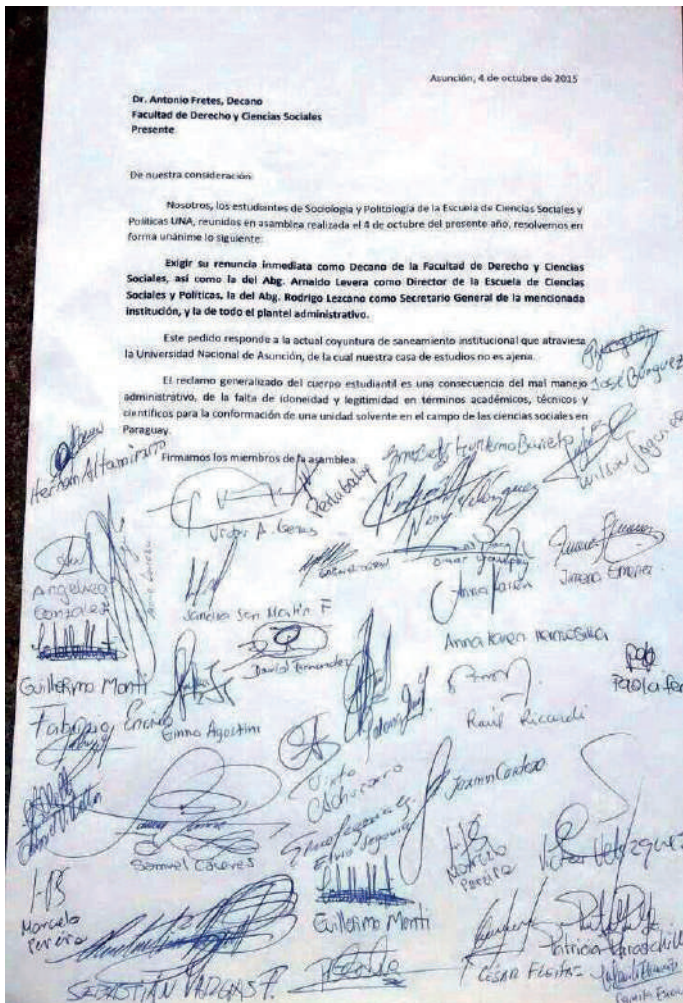 Asunción, 4 de octubre de 2015
Dr. Antonio Fretes, Decano
Facultad de Derecho y Ciencias Sociales
Presente
De nuestra consideración:
Nosotros, los estudiantes de Sociología y Politología de la Escuela de Ciencias Sociales y
Políticas UNA, reunidos en asamblea realizada el 4 de octubre del presente año, resolvemos en
forma unánime lo siguiente:
Exigir su renuncia inmediata como Decano de la Facultad de Derecho y Ciencias
Sociales, así como la del Abg. Arnaldo Levera como Director de la Escuela de Ciencias
Sociales y Políticas, la del Abg. Rodrigo Lezcano como Secretario General de la mencionada
institución, y la de todo el plantel administrativo.
Este pedido responde a la actual coyuntura de saneamiento institucional que atraviesa
la Universidad Nacional de Asunción, de la cual nuestra casa de estudios no es ajena.
El reclamo generalizado del cuerpo estudiantil es una consecuencia del mal manejo
administrativo, de la falta de idoneidad y legitimidad en términos académicos, técnicos y
científicos para la conformación de una unidad solvente en el campo de las ciencias sociales en
Paraguay.
Firmamos los miembros de la asamblea
José Bungues
Hernán Altamirano
Wilson
Angelica
Gonzalez
Sandra San Martín F
Jimena
Anna Karen
Guillermo Monti
David Fernandez
Paola
Fabrizio
Emma Agostini
Raúl Riccardi
Joann Cardozo
Samuel Cáceres
Elvio Segovia
Marcelo
Pereira
Victor Velazquez
Marcelo
Pereira
Guillermo Monti
Patricia
SEBASTIÁN VARGAS F.
CÉSAR FLEITAS